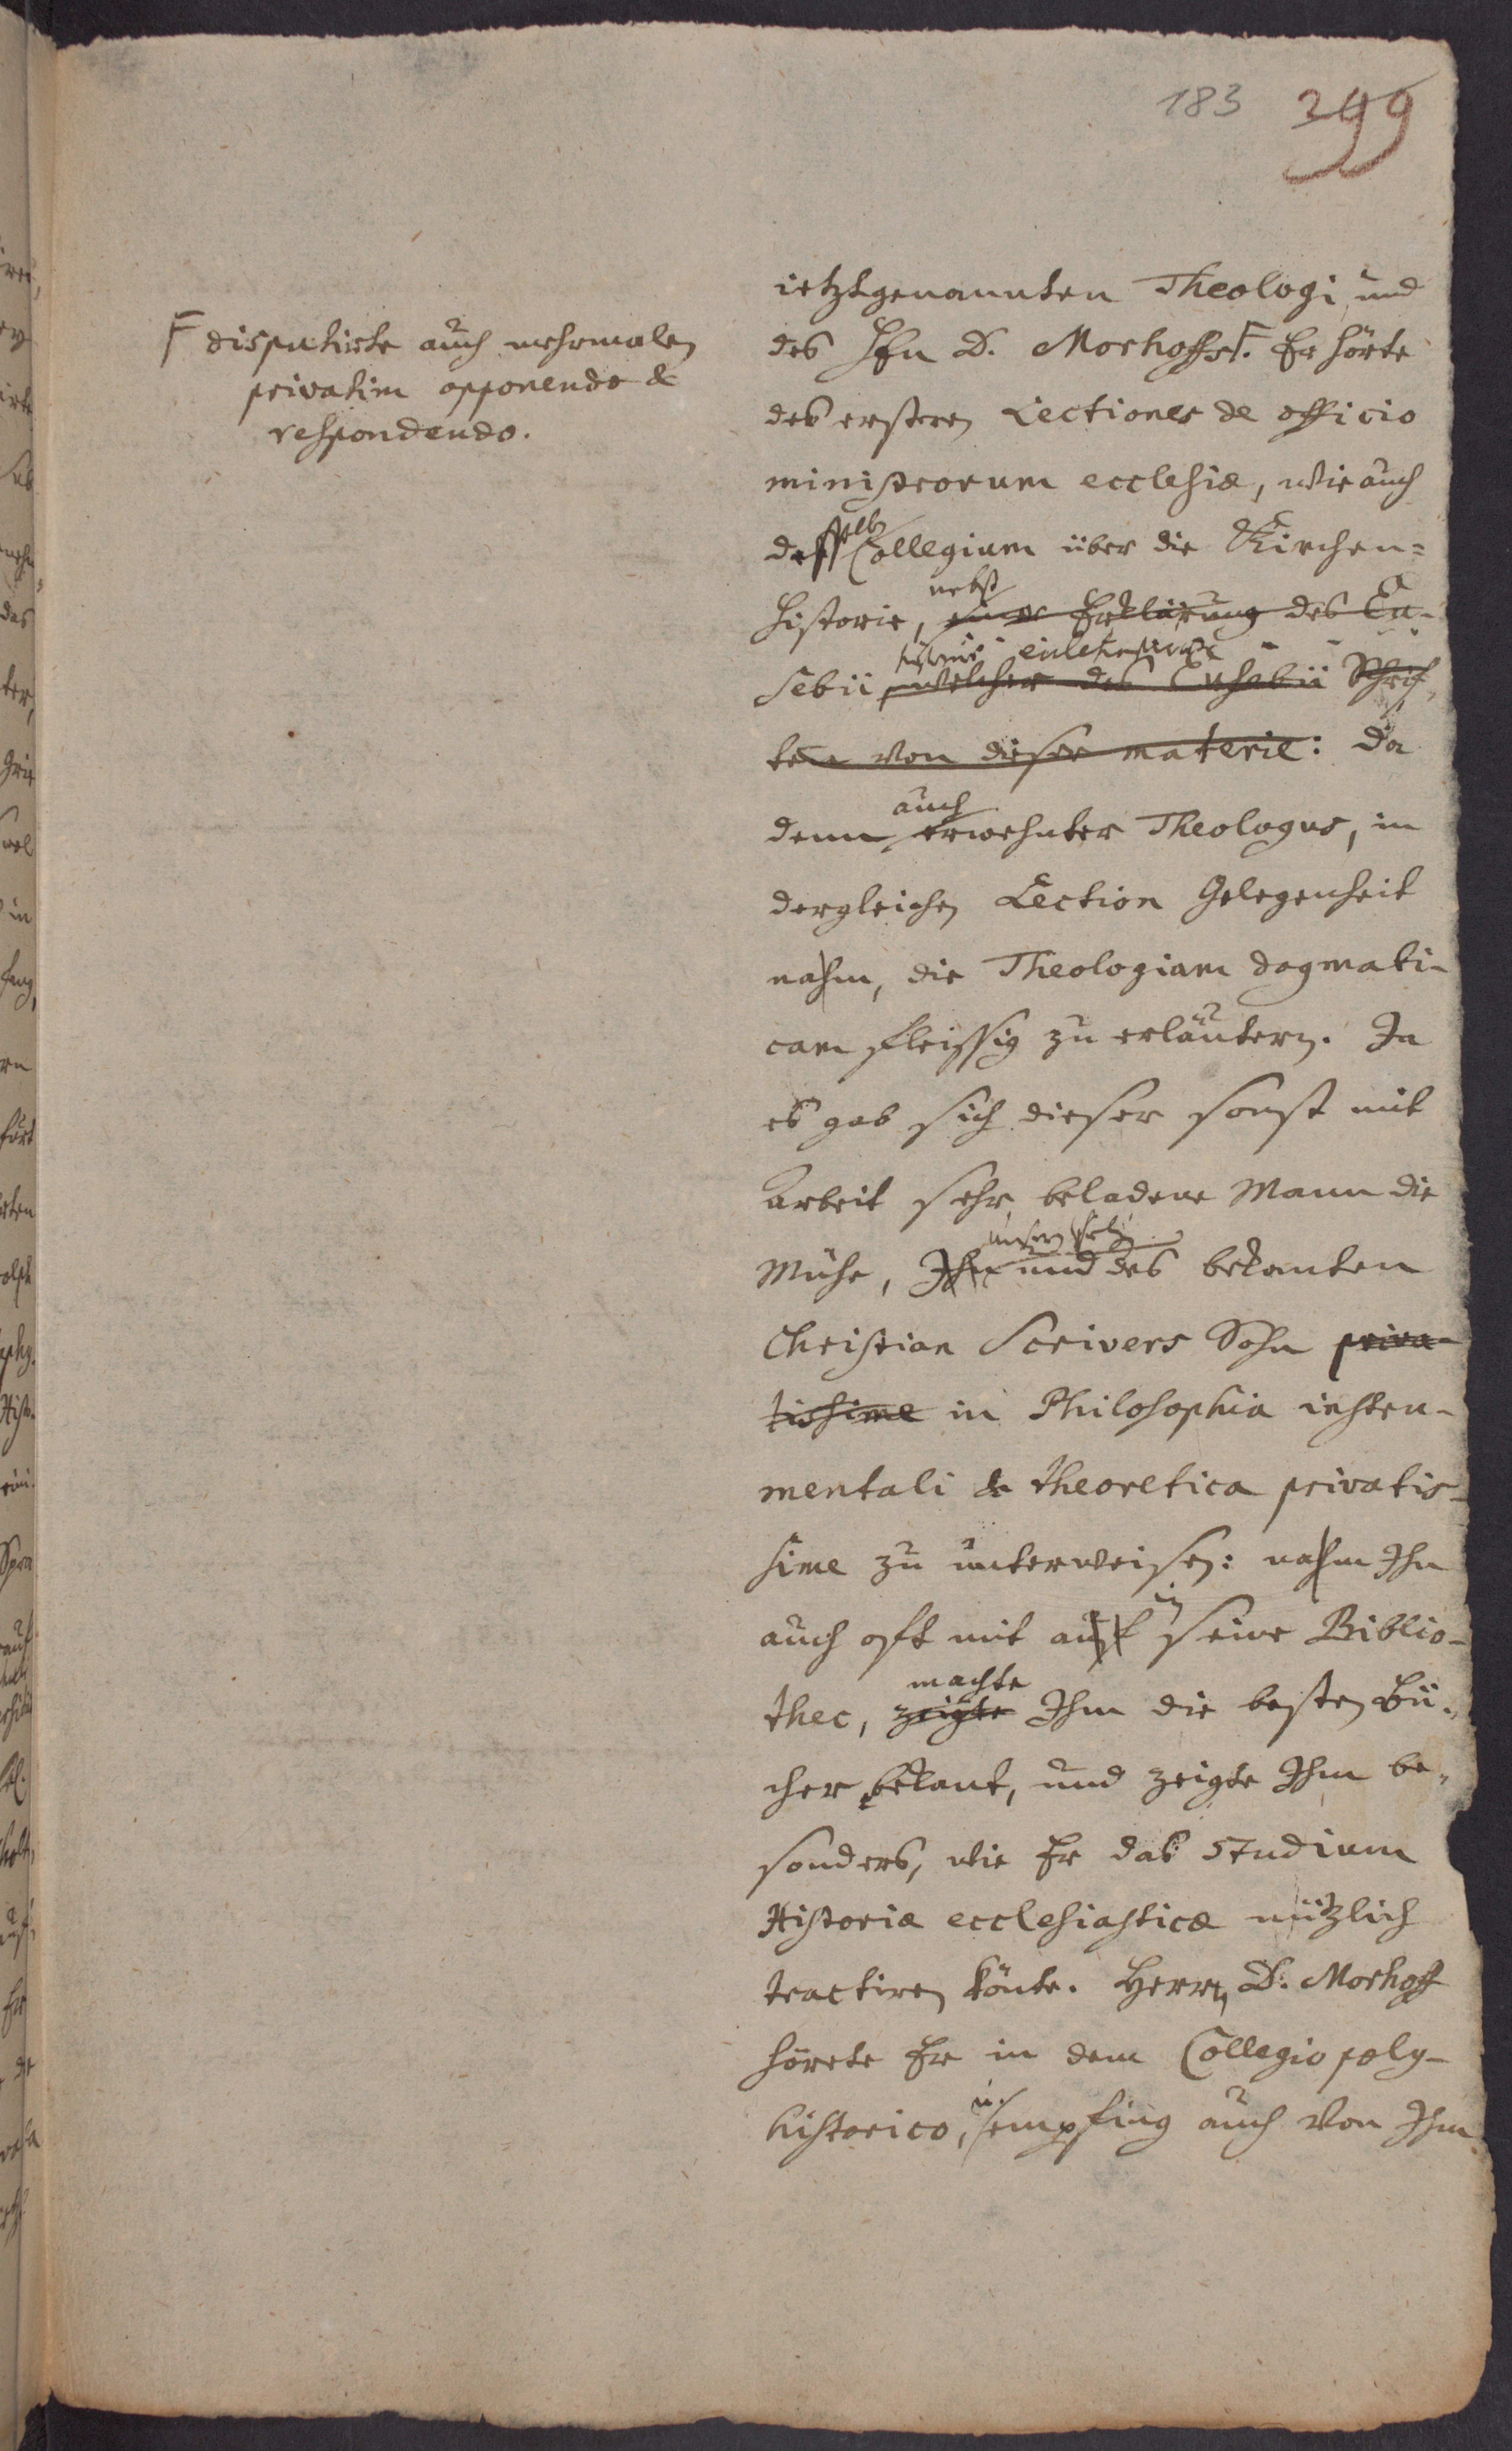 183 399
F disputirte auch mehrmalen
privatim opponendo &
respondendo.
ietztgenannten Theologi und
des Hn D. Morhoffs F. Er hörte
des ersteren Lectiones de officio
ministrorum ecclesiæ, wie auch
Collegium über die Kirchen=
nebst
historie, einer Erklärung des Eu-
sebii, welcher des Eusebii Schrif-
ten von dieser materie: Da
auch
denn erwehnter Theologus, in
dergleichen Lection Gelegenheit
nahm, die Theologiam dogmati-
cam fleissig zu erläutern. Ja
es gab sich dieser sonst mit
Arbeit sehr beladene Mann die
Mühe, Ihn und des bekanten
Christian Scrivers Sohn priva-
tissime in Philosophia instru-
mentali & theoretica privatis-
sime zu unterweisen: nahm Ihn
in
auch oft mit auf seine Biblio-
machte
thec, zeigte Ihm die besten Bü-
cher bekant, und zeigte Ihm be-
sonders, wie Er das studium
Historiæ ecclesiasticæ nützlich
tractiren könte. Herrn D. Morhoff
hörete Er in dem Collegio poly-
u.
historico, empfing auch von Ihm